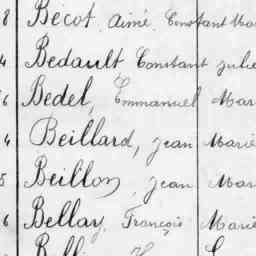 8 Bécot, Aimé Constant Mar
4 Bedault Constant Julie
6 Bedel, Emmanuel Mar
4 Beillard, Jean Marie
5 Beillon, Jean Mar
6 Bellay, François Marie